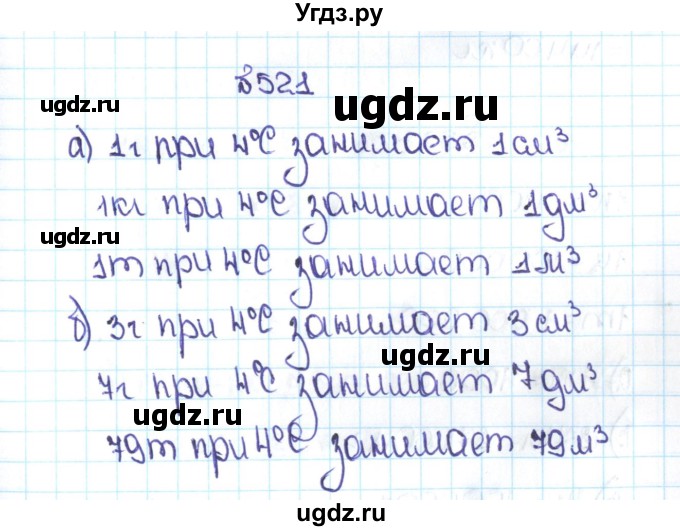 Угдз.ру
№521
ugdz.ru
ugdz.ru
а) 1г при 4°С занимает 1 см³
1кг при 4°С занимает 1 дм³
ugdz.ru
1т при 4°С занимает 1 м³
б) 3г при 4°С занимает 3 см³
ugdz.ru
7г при 4°С занимает 7 дм³
ugdz.ru
79т при 4°С занимает 79 м³
Угдз.ру